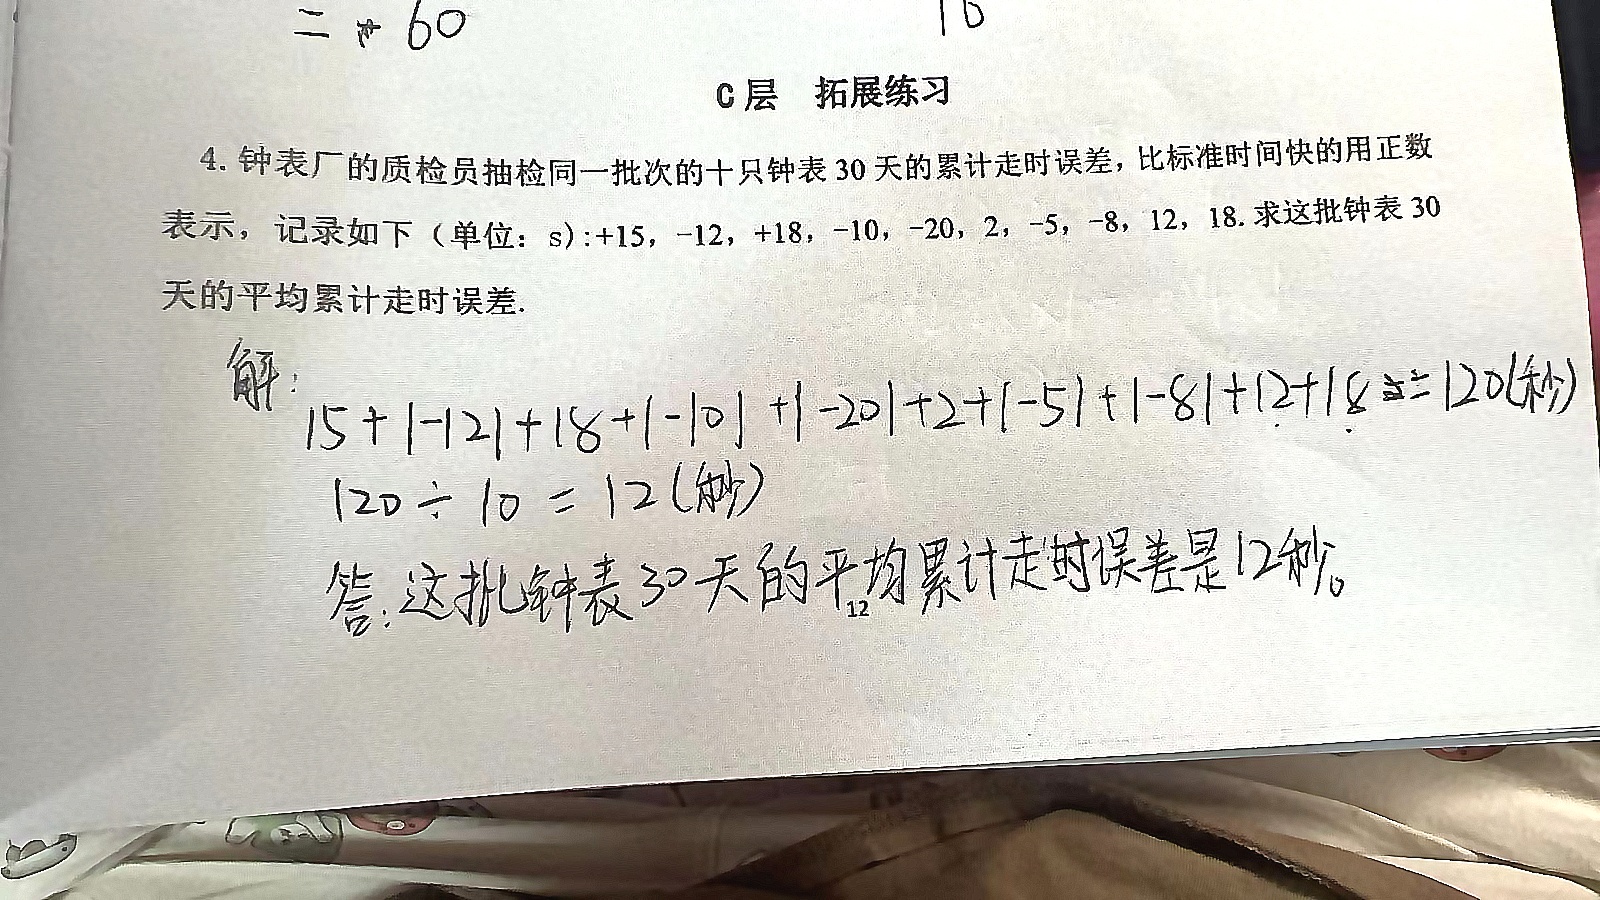 = 60
10
C 层 拓展练习
4. 钟表厂的质检员抽检同一批次的十只钟表 30 天的累计走时误差，比标准时间快的用正数
表示，记录如下（单位：s）:+15，-12，+18，-10，-20，2，-5，-8，12，18. 求这批钟表 30
天的平均累计走时误差.
解：
15+|-12|+18+|-10|+|-20|+2+|-5|+|-8|+12+18=120(秒)
120÷10=12(秒)
答：这批钟表30天的平均累计走时误差是12秒。
12